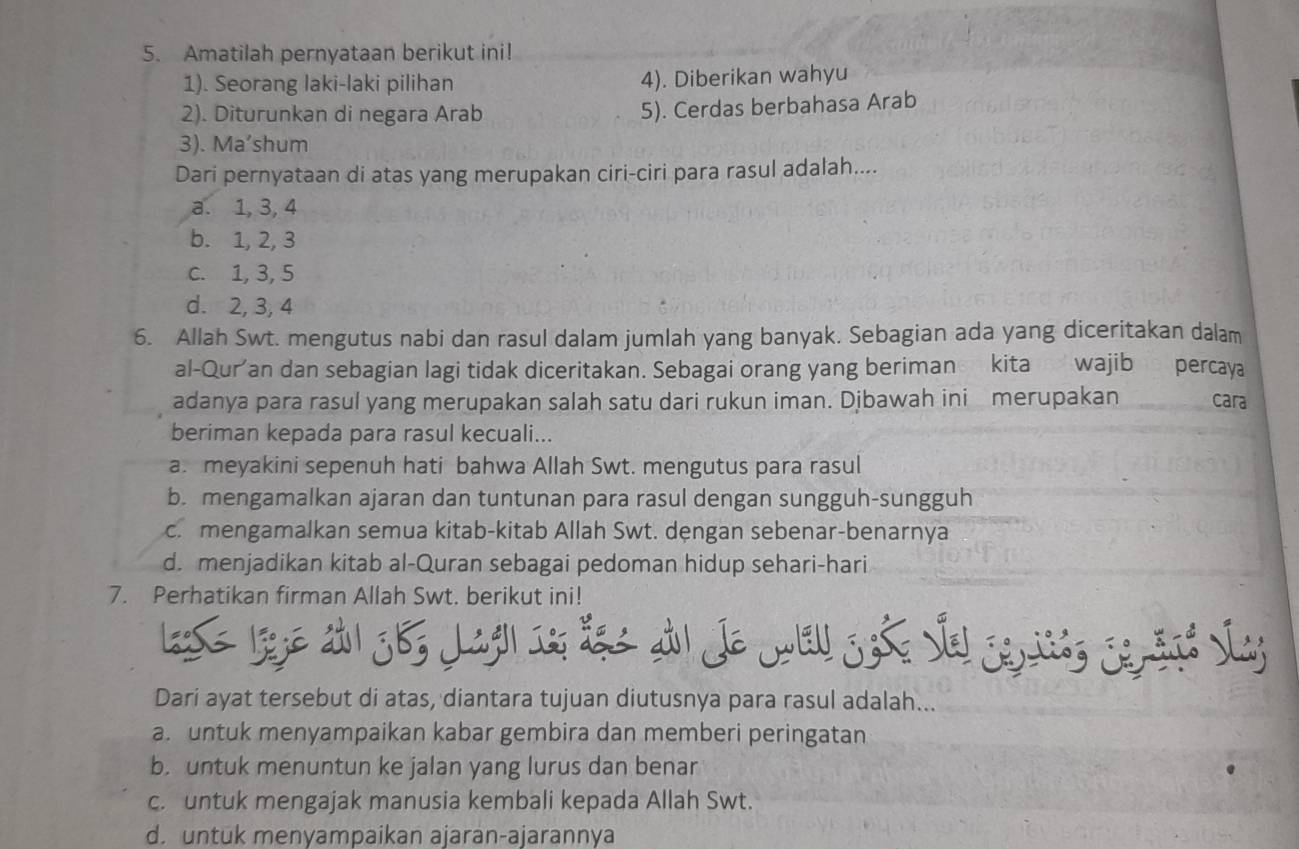 5. Amatilah pernyataan berikut ini!
1). Seorang laki-laki pilihan 4). Diberikan wahyu
2). Diturunkan di negara Arab 5). Cerdas berbahasa Arab
3). Ma'shum
Dari pernyataan di atas yang merupakan ciri-ciri para rasul adalah....
a. 1, 3, 4
b. 1, 2, 3
c. 1, 3, 5
d. 2, 3, 4
6. Allah Swt. mengutus nabi dan rasul dalam jumlah yang banyak. Sebagian ada yang diceritakan dalam
al-Qur'an dan sebagian lagi tidak diceritakan. Sebagai orang yang beriman kita wajib percaya
adanya para rasul yang merupakan salah satu dari rukun iman. Dibawah ini merupakan cara
beriman kepada para rasul kecuali...
a. meyakini sepenuh hati bahwa Allah Swt. mengutus para rasul
b. mengamalkan ajaran dan tuntunan para rasul dengan sungguh-sungguh
c. mengamalkan semua kitab-kitab Allah Swt. dengan sebenar-benarnya
d. menjadikan kitab al-Quran sebagai pedoman hidup sehari-hari
7. Perhatikan firman Allah Swt. berikut ini!
رُسُلًا مُّبَشِّرِيْنَ وَمُنْذِرِيْنَ لِئَلَّا يَكُوْنَ لِلنَّاسِ عَلَى اللهِ حُجَّةٌ بَعْدَ الرُّسُلِ وَكَانَ اللهُ عَزِيْزًا حَكِيْمًا
Dari ayat tersebut di atas, diantara tujuan diutusnya para rasul adalah...
a. untuk menyampaikan kabar gembira dan memberi peringatan
b. untuk menuntun ke jalan yang lurus dan benar
c. untuk mengajak manusia kembali kepada Allah Swt.
d. untuk menyampaikan ajaran-ajarannya